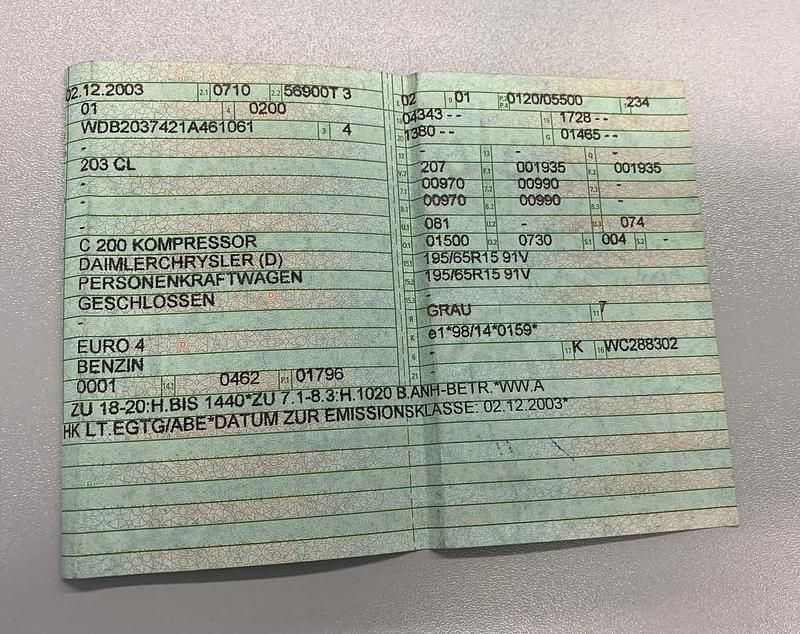 02.12.2003 2.1 0710 2.2 56900T 3
01 4 0200
WDB2037421A461061 3 4
-
203 CL
-
-
-
C 200 KOMPRESSOR
DAIMLERCHRYSLER (D)
PERSONENKRAFTWAGEN
GESCHLOSSEN
-
EURO 4
BENZIN
0001 14.1 0462 P.1 01796
02 9 01 P.2 P.4 0120/05500 .234
04343 - - 19 1728 - -
1380 - - G 01465 - -
12 - 13 - Q -
V.7 207 F.1 001935 F.2 001935
7.1 00970 7.2 00990 7.3 -
8.1 00970 8.2 00990 8.3 -
U.1 081 U.2 - U.3 074
O.1 01500 O.2 0730 S.1 004 S.2 -
15.1 195/65R15 91V
15.2 195/65R15 91V
15.3 -
R GRAU 11 7
K e1*98/14*0159*
6 - 17 K 16 WC288302
21 -
ZU 18-20:H.BIS 1440*ZU 7.1-8.3:H.1020 B.ANH-BETR.*WW.A
HK LT.EGTG/ABE*DATUM ZUR EMISSIONSKLASSE: 02.12.2003*